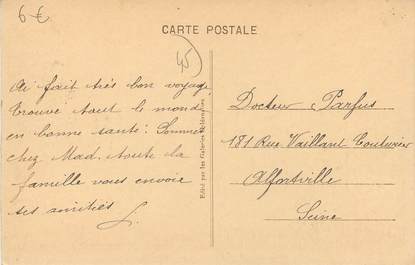 6€
CARTE POSTALE
45
Ai fait très bon voyage
trouvé tout le monde
en bonne santé. Sommes
chez Mad. toute la
famille vous envoie
ses amitiés
Edité par les Galeries
Docteur Parfus
181 Rue Vaillant Couturier
Alfortville
Seine